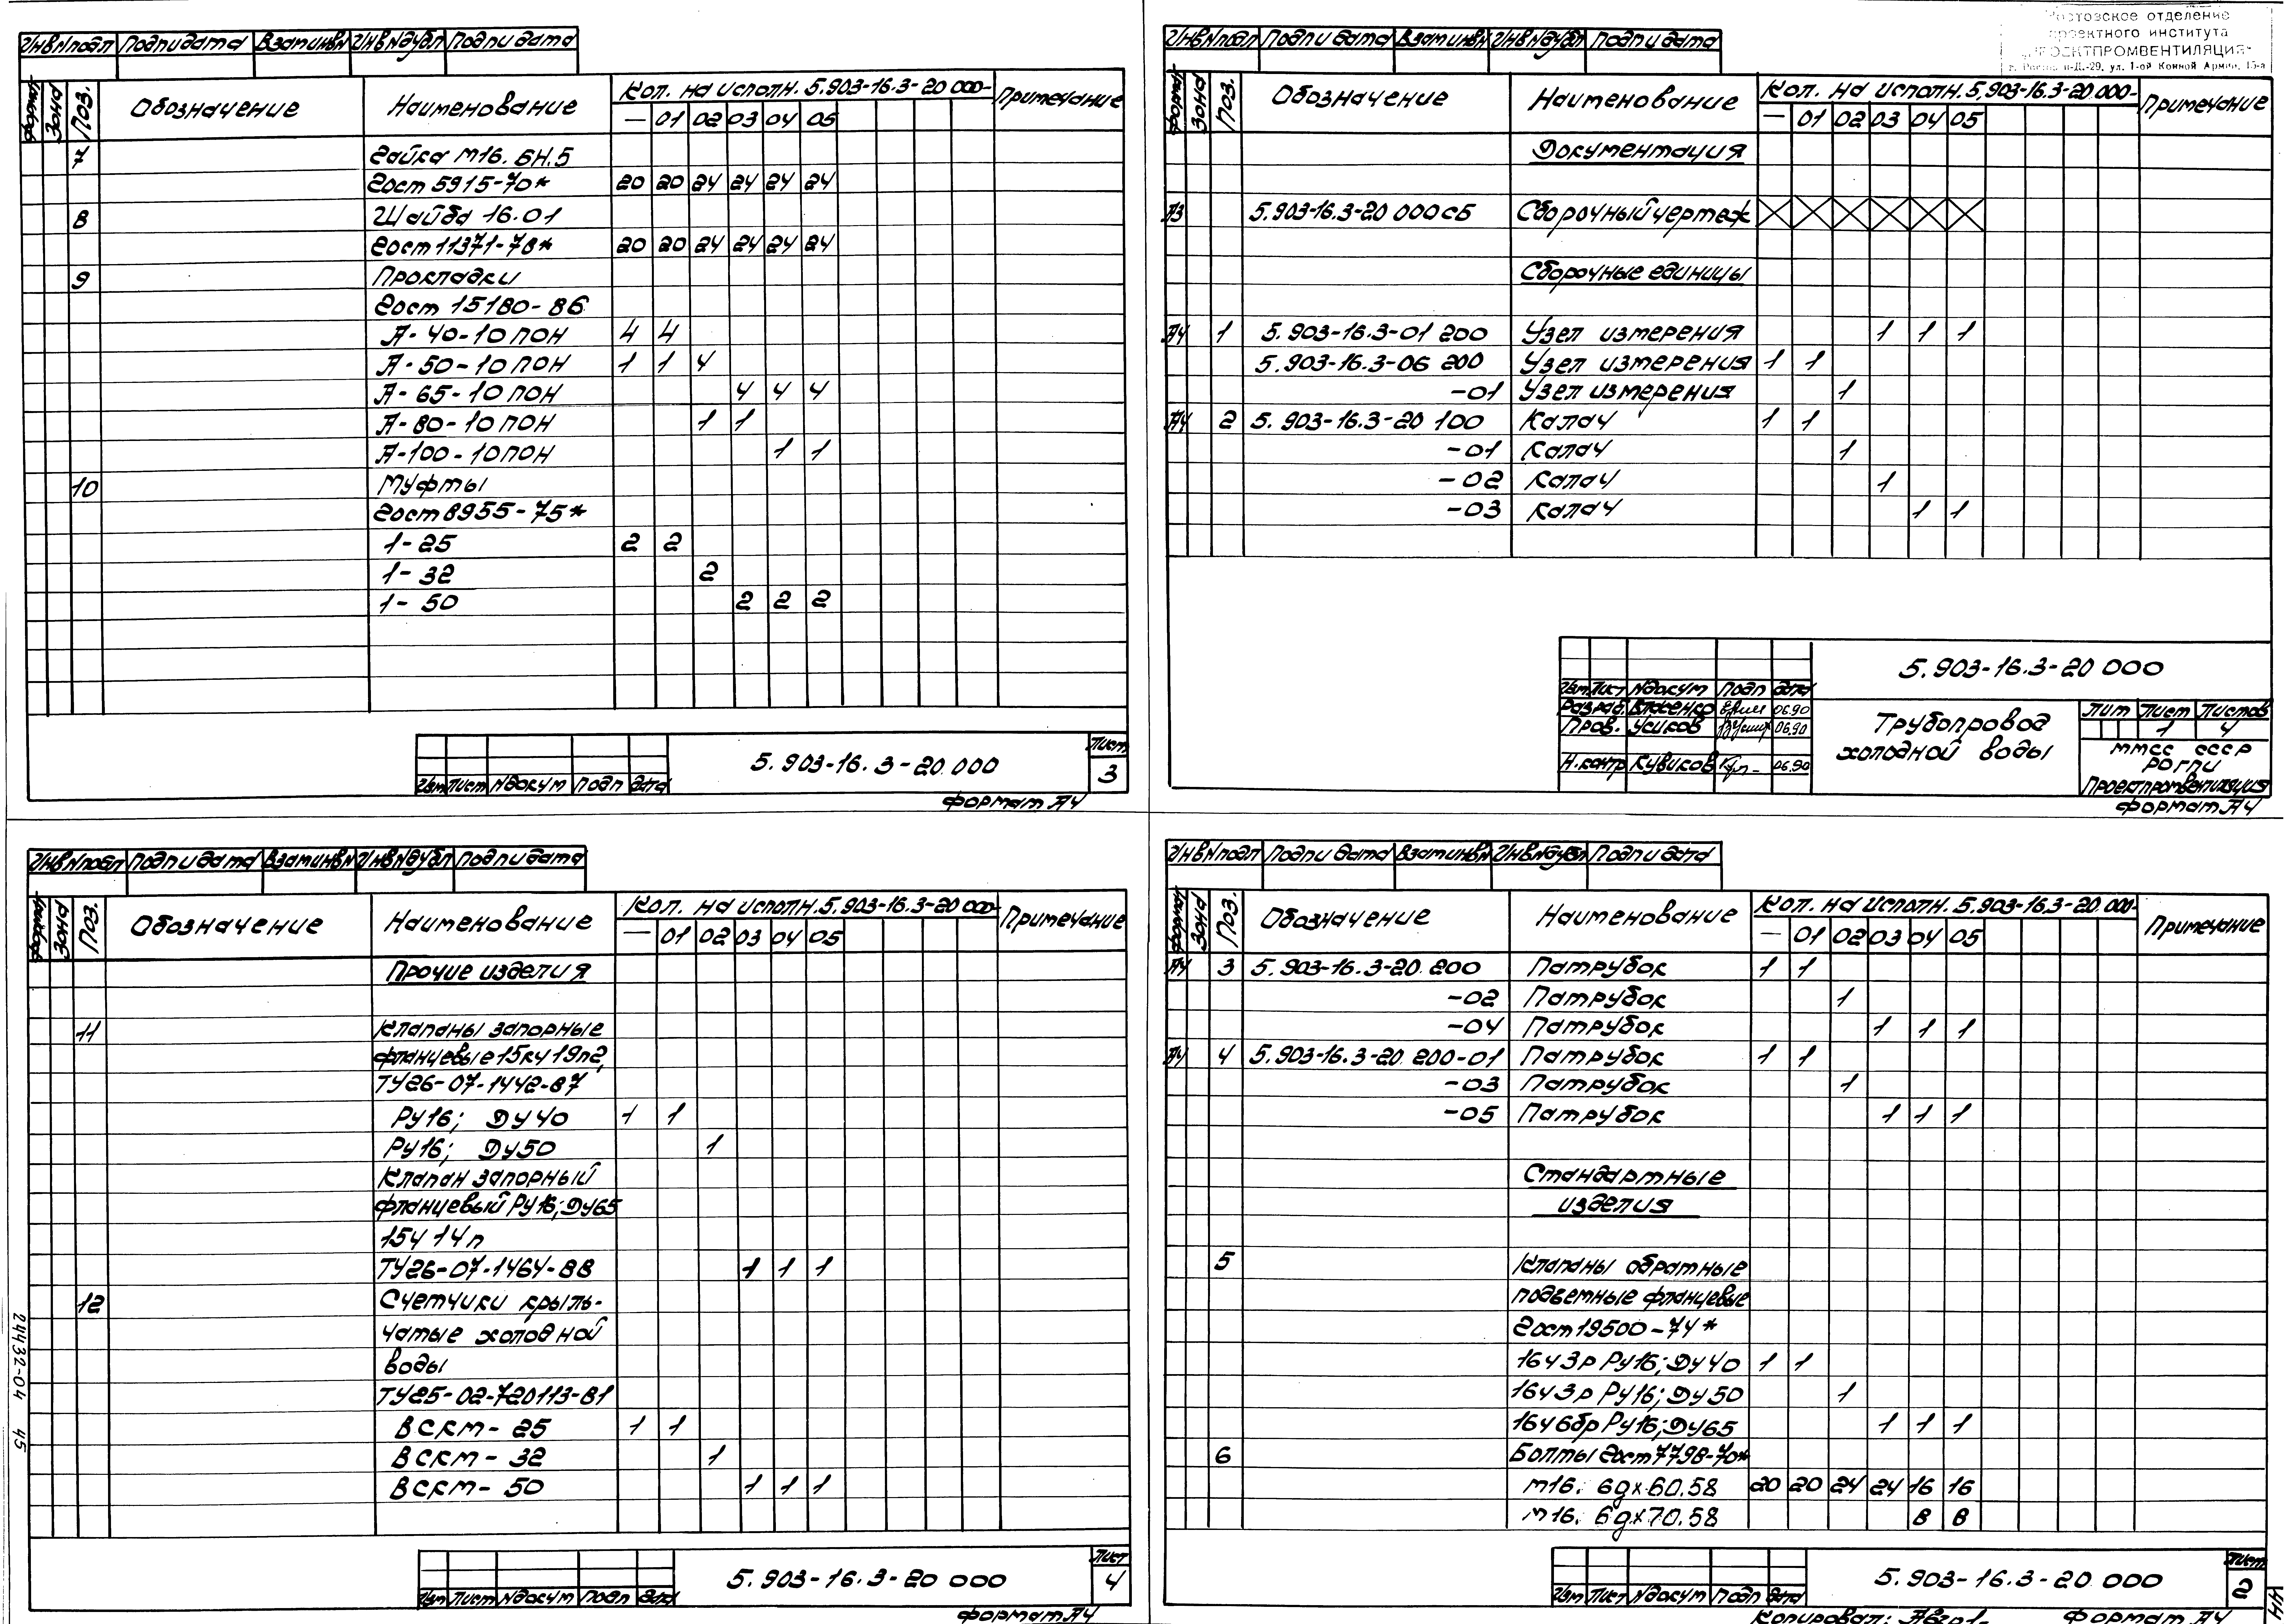 Инв№подл Подп и дата Взам инв№ Инв№дубл Подп и дата
Формат Зона Поз. Обозначение Наименование Кол. на исполн. 5.903-16.3-20 000- Примечание
— 01 02 03 04 05
7 Гайка М16. 6Н.5
Гост 5915-70* 20 20 24 24 24 24
8 Шайба 16.01
Гост 11371-78* 20 20 24 24 24 24
9 Прокладки
Гост 15180-86
А-40-10 ПОН 4 4
А-50-10 ПОН 1 1 4
А-65-10 ПОН 4 4 4
А-80-10 ПОН 1 1
А-100-10 ПОН 1 1
10 Муфты
Гост 8955-75*
1-25 2 2
1-32 2
1-50 2 2 2
5.903-16.3-20.000
Лист
3
Изм Лист №докум Подп Дата
Формат А4
Ростовское отделение
проектного института
"ПРОЕКТПРОМВЕНТИЛЯЦИЯ"
г. Ростов н-Д.-29, ул. 1-ой Конной Армии, 15-а
Инв№подл Подп и дата Взам инв№ Инв№дубл Подп и дата
Формат Зона Поз. Обозначение Наименование Кол. на исполн. 5.903-16.3-20.000- Примечание
— 01 02 03 04 05
Документация
А3 5.903-16.3-20 000СБ Сборочный чертеж
Сборочные единицы
А4 1 5.903-16.3-01 200 Узел измерения 1 1 1
5.903-16.3-06 200 Узел измерения 1 1
-01 Узел измерения 1
А4 2 5.903-16.3-20 100 Калач 1 1
-01 Калач 1
-02 Калач 1
-03 Калач 1 1
5.903-16.3-20 000
Изм Лист №докум Подп Дата
Разраб. Власенко 06.90
Пров. Усиков 06.90
Н.контр Кувиков 06.90
Трубопровод
холодной воды
Лит Лист Листов
1 4
ММСС СССР
РОГПИ
Проектпромвентиляция
Формат А4
Инв№подл Подп и дата Взам инв№ Инв№дубл Подп и дата
Формат Зона Поз. Обозначение Наименование Кол. на исполн. 5.903-16.3-20 000- Примечание
— 01 02 03 04 05
Прочие изделия
11 Клапаны запорные
фланцевые 15кч 19п2,
ТУ26-07-1442-87
Ру16; Ду40 1 1
Ру16; Ду50 1
Клапан запорный
фланцевый Ру16; Ду65
15ч 14п
ТУ26-07-1464-88 1 1 1
12 Счетчики крыль-
чатые холодной
воды
ТУ25-02-720113-81
ВСКМ-25 1 1
ВСКМ-32 1
ВСКМ-50 1 1 1
5.903-16.3-20 000
Лист
4
Изм Лист №докум Подп Дата
Формат А4
24432-04 45
Инв№подл Подп и дата Взам инв№ Инв№дубл Подп и дата
Формат Зона Поз. Обозначение Наименование Кол. на исполн. 5.903-16.3-20.000- Примечание
— 01 02 03 04 05
А4 3 5.903-16.3-20.200 Патрубок 1 1
-02 Патрубок 1
-04 Патрубок 1 1 1
А4 4 5.903-16.3-20.200-01 Патрубок 1 1
-03 Патрубок 1
-05 Патрубок 1 1 1
Стандартные
изделия
5 Клапаны обратные
подъемные фланцевые
Гост 19500-74*
16ч 3р Ру16; Ду40 1 1
16ч 3р Ру16; Ду50 1
16ч 6бр Ру16; Ду65 1 1 1
6 Болты Гост 7798-70*
М16. 6gх60.58 20 20 24 24 16 16
М16. 6gх70.58 8 8
5.903-16.3-20.000
Лист
2
Изм Лист №докум Подп Дата
Копировал: Формат А4